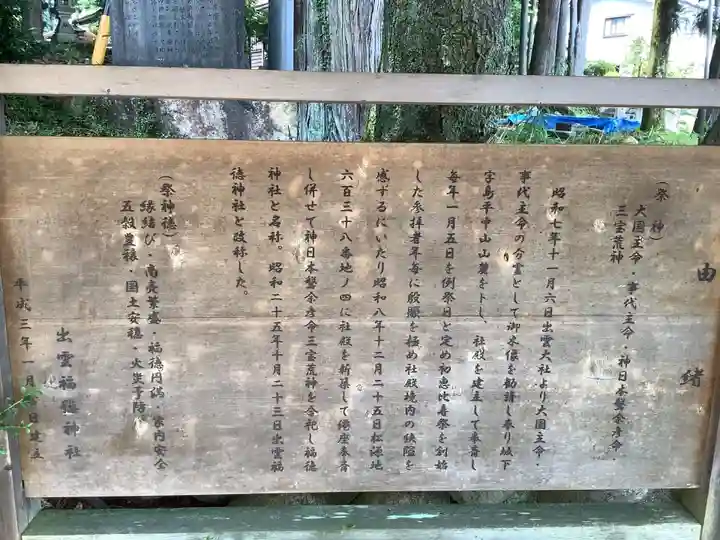 由緒
(祭神)
大国主命・事代主命・神日本磐余彦命・
三宝荒神
昭和七年十一月六日出雲大社より大国主命・
事代主命の分霊として御木像を勧請し奉り城下
字島平中山山麓を卜し、社殿を建立して奉斎し
毎年一月五日を例祭日と定め初恵比寿祭を創始
した参拝者年毎に殷賑を極め社殿境内の狭隘を
感ずるにいたり昭和八年十二月二十五日松源地
六百三十八番地ノ四に社殿を新築して遷座奉斎
し併せて神日本磐余彦命三宝荒神を合祀し福徳
神社と名称。昭和二十五年十月二十三日出雲福
徳神社と改称した。
(祭神徳)
縁結び・商売繁盛・福徳円満・家内安全
五穀豊穣・国土安穏・火災予防
平成三年一月 日建立
出雲福徳神社